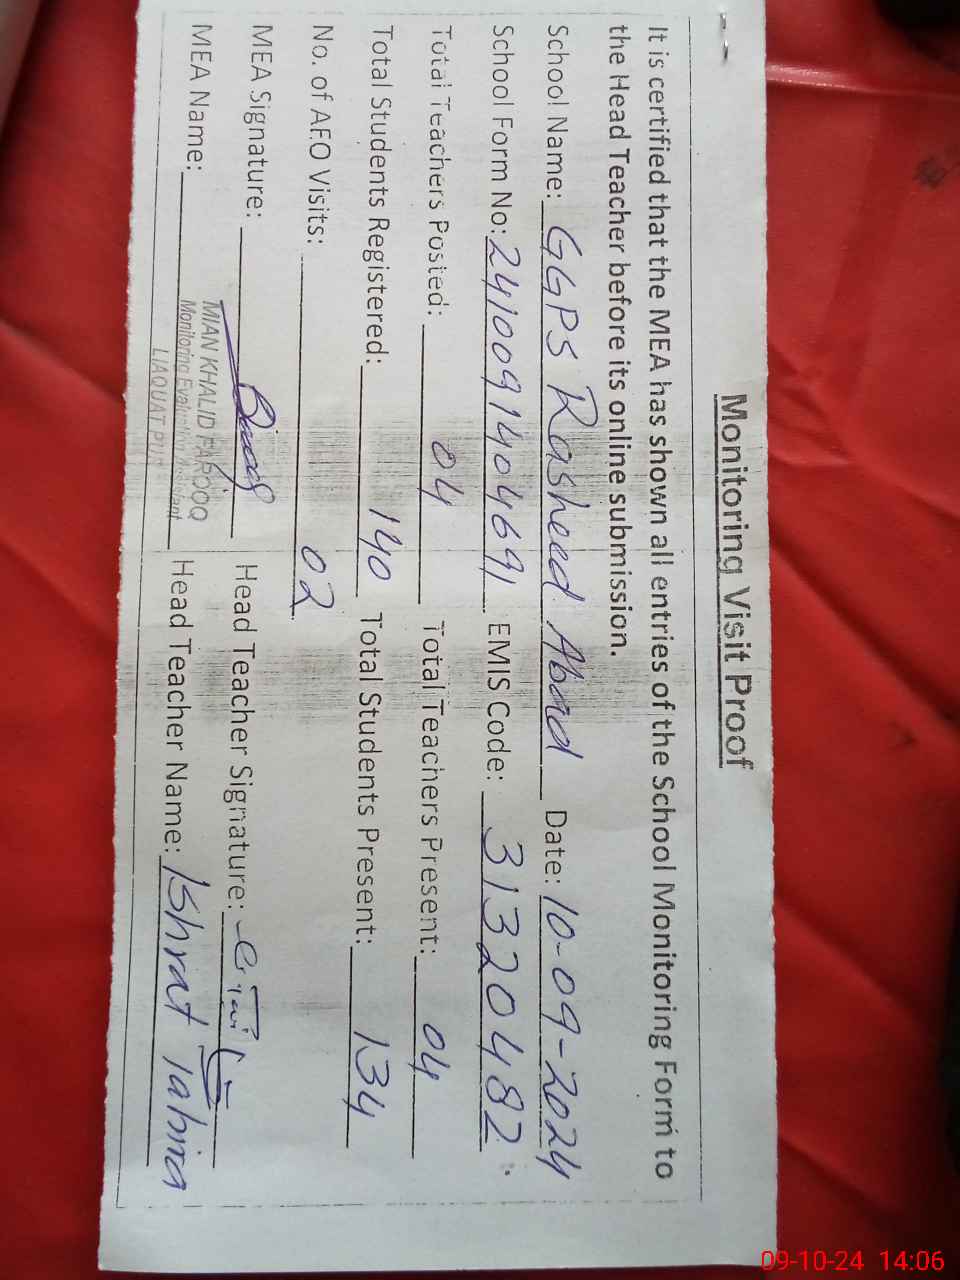 Monitoring Visit Proof
It is certified that the MEA has shown all entries of the School Monitoring Form to
the Head Teacher before its online submission.
School Name: GGPS Rasheed Abad Date: 10-09-2024
School Form No: 241009140469 EMIS Code: 31320482
Total Teachers Posted: 04 Total Teachers Present: 04
Total Students Registered: 140 Total Students Present: 134
No. of AEO Visits: 02
MEA Signature: Head Teacher Signature:
MIAN KHALID FAROOQ
MEA Name: Monitoring Evaluation Assistant Head Teacher Name: Ishrat Tahira
LIAQUAT PUR
09-10-24 14:06